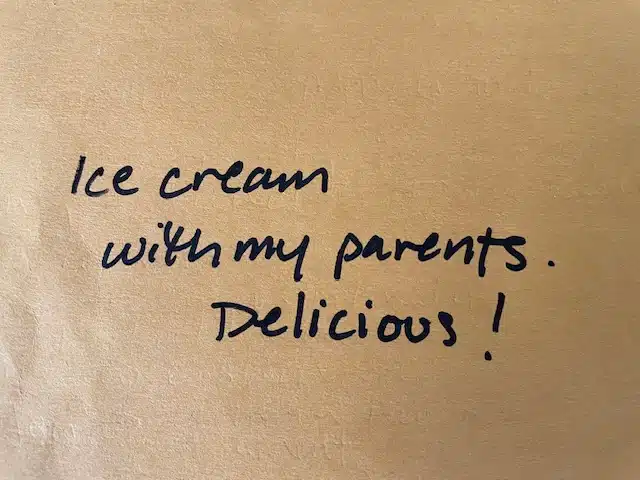 Ice cream
with my parents.
Delicious!